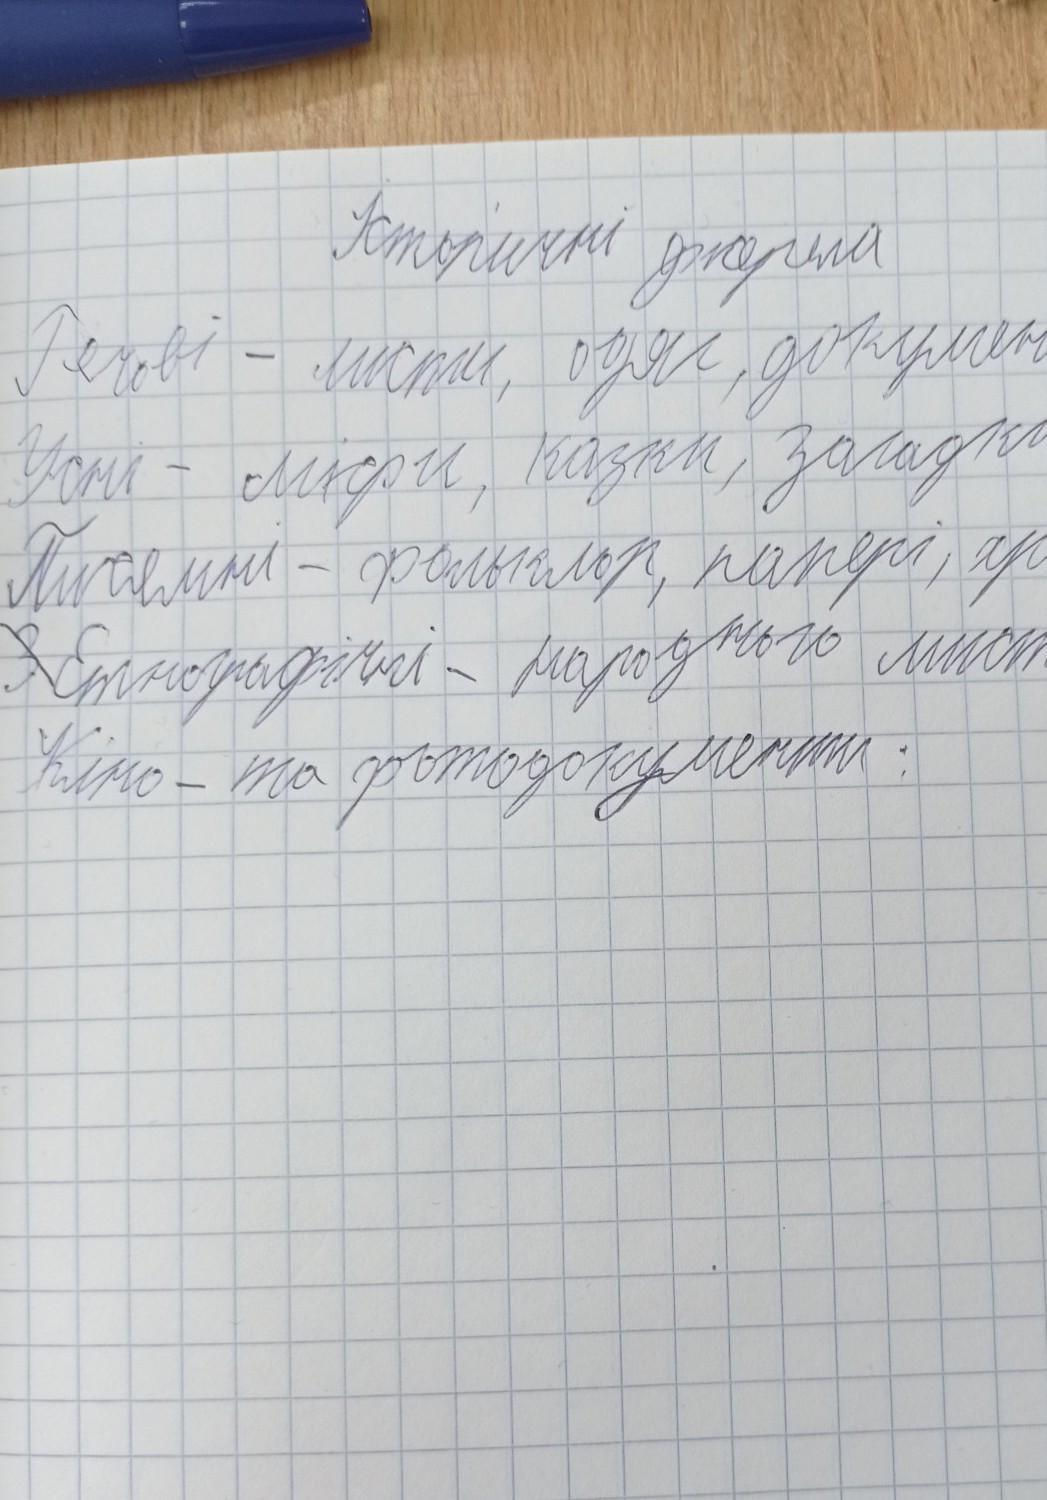 Історичні джерела
Речові - листи, одяг, докумен
Усні - міфи, казки, загадки
Писемні - фольклор, папері, хро
Етнографічні - народного мист
Кіно - та фотодокументи: